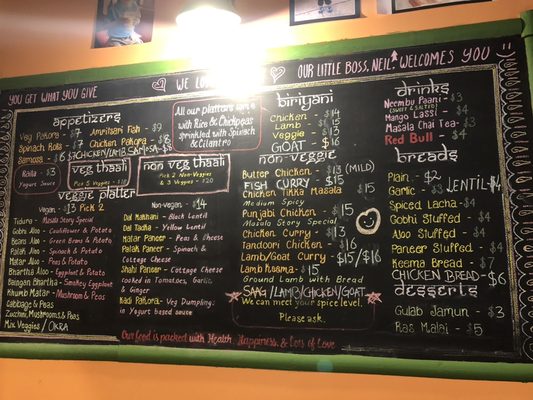 YOU GET WHAT YOU GIVE
WE LO
OUR LITTLE BOSS, NEIL WELCOMES YOU
appetizers
Veg Pakora $7
Amritsari Fish $9
Spinach Rolls $7
Chicken Pakora $8
Samosa $6
Raita $3
Yogurt Sauce
veg thaali
Pick 3 Veggies
non veg thaali
Pick 2 Non-Veggies
& 3 Veggies
All our platters come
with Rice & Chickpeas
sprinkled with Spinach
& Cilantro
veggie platter
Vegan - $13 Pick 2
Non-vegan - $14
Tidora - Masala Story Special
Gobhi Aloo - Cauliflower & Potato
Beans Aloo - Green Beans & Potato
Palak Aloo - Spinach & Potato
Matar Aloo - Peas & Potato
Bhartha Aloo - Eggplant & Potato
Baingan Bhartha - Smokey Eggplant
Khumb Matar - Mushroom & Peas
Cabbage & Peas
Zucchini, Mushrooms & Peas
Mix Veggies / OKRA
Dal Makhani - Black Lentil
Dal Tadka - Yellow Lentil
Matar Paneer - Peas & Cheese
Palak Paneer - Spinach &
Cottage Cheese
Shahi Paneer - Cottage Cheese
cooked in Tomatoes, Garlic
& Ginger
Kadi Pakora - Veg Dumpling
in Yogurt based sauce
biriyani
Chicken - $14
Lamb - $15
Veggie - $13
GOAT - $16
non-veggie
Butter Chicken - $13 (MILD)
FISH CURRY $15
Chicken Tikka Masala $15
Medium Spicy
Punjabi Chicken - $15
Masala Story Special
Chicken Curry - $13
Tandoori Chicken - $16
Lamb/Goat Curry - $15/$16
Lamb Keema - $15
Ground Lamb with Bread
SAAG/LAMB/CHICKEN/GOAT
We can meet your spice level.
Please ask.
drinks
Neembu Paani - $3
(SWEET & SALTED)
Mango Lassi - $4
Masala Chai Tea - $3
Red Bull - $4
breads
Plain - $2
Garlic - $3
LENTIL-$4
Spiced Lacha - $4
Gobhi Stuffed - $4
Aloo Stuffed - $4
Paneer Stuffed - $4
Keema Bread - $7
CHICKEN BREAD - $6
desserts
Gulab Jamun - $3
Ras Malai - $5
Our food is packed with Health, Happiness, & Lots of Love